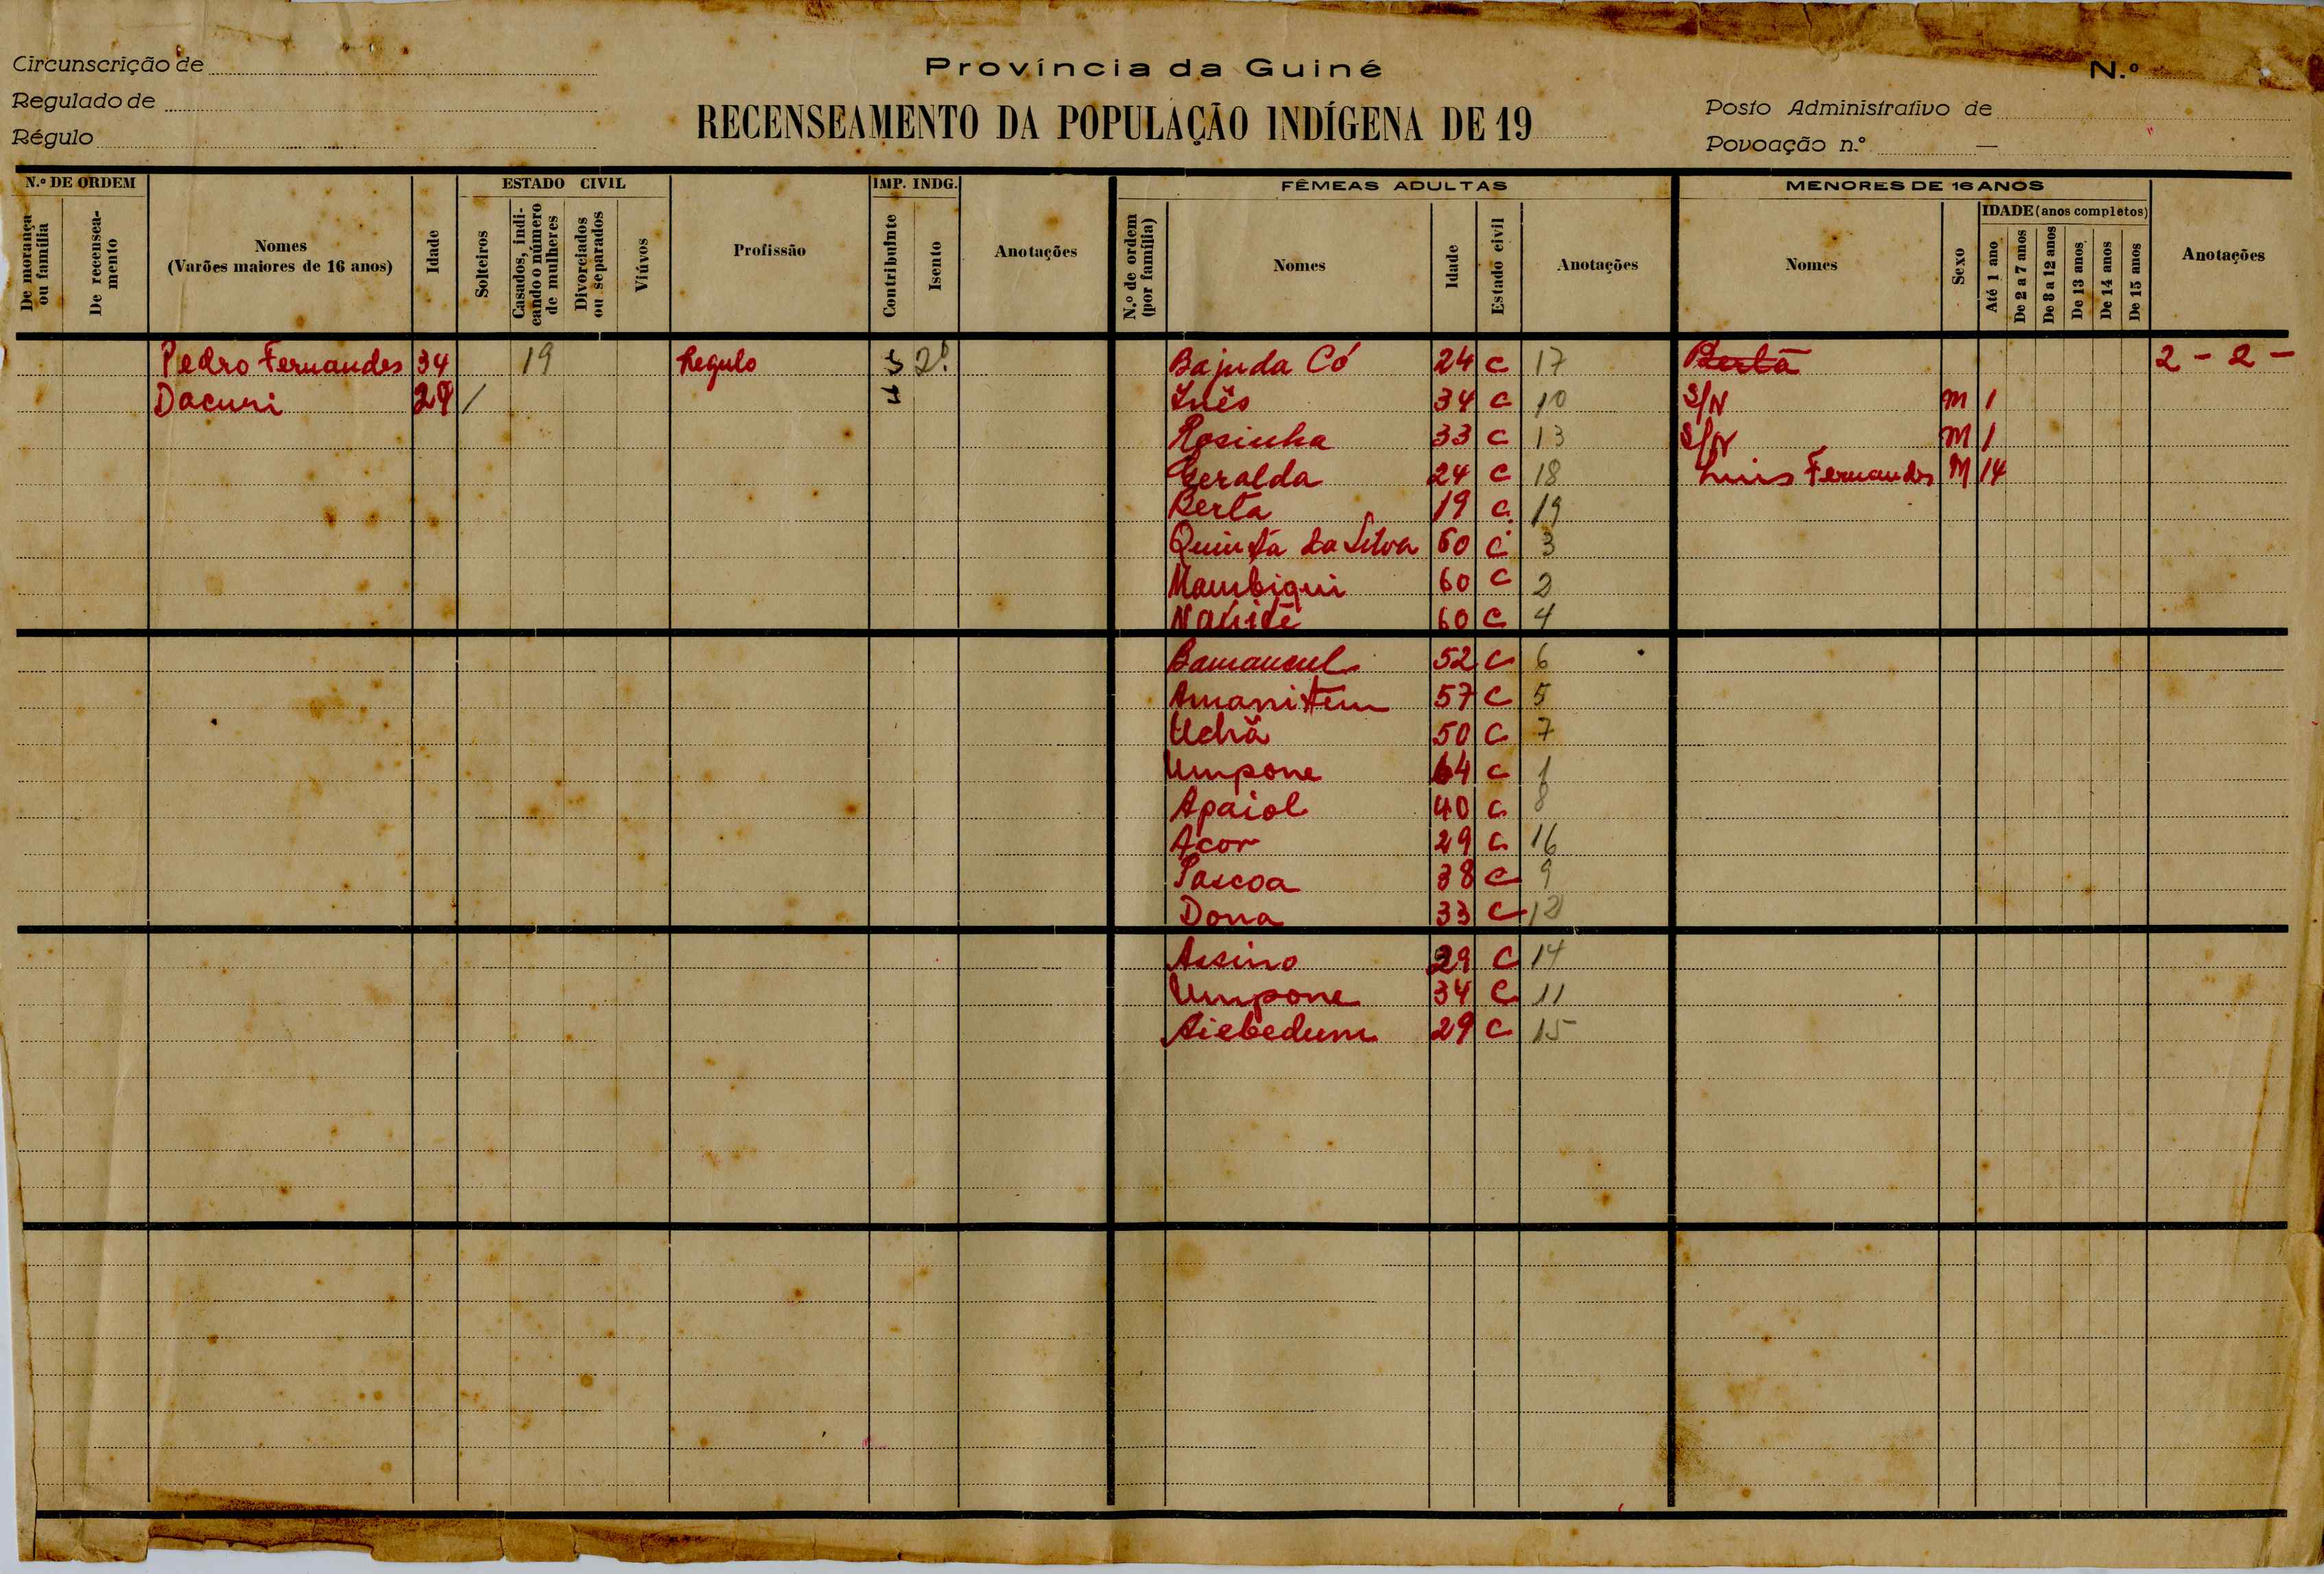 Circunscrição de
Regulado de
Régulo
Província da Guiné
RECENSEAMENTO DA POPULAÇÃO INDÍGENA DE 19
N.º
Posto Administrativo de
Povoação n.º —
N.º DE ORDEM
De morança ou família
De recenseamento
Nomes
(Varões maiores de 16 anos)
Idade
ESTADO CIVIL
Solteiros
Casados, indicando o número de mulheres
Divorciados ou separados
Viúvos
Profissão
IMP. INDG.
Contribuinte
Isento
Anotações
FÊMEAS ADULTAS
N.º de ordem (por família)
Nomes
Idade
Estado civil
Anotações
MENORES DE 16 ANOS
Nomes
Sexo
IDADE (anos completos)
Até 1 ano
De 2 a 7 anos
De 8 a 12 anos
De 13 anos
De 14 anos
De 15 anos
Anotações
Pedro Fernandes 34 19 Regulo Bajuda Có 24 C 17 Berta 2 - 2 -
Dacuri / Inês 34 C 10 S/N M 1
Rosinha 33 C 13 S/N M 1
Geralda 24 C 18 Luis Fernandes M 14
Berta 19 C 19
Quinta da Silva 60 C 3
Mambiqui 60 C 2
60 C 4
52 C 6
Amanitem 57 C 5
Uchã 50 C 7
Umpone 64 C 1
Apaiol 40 C 8
Acor 29 C 16
Pascoa 38 C 9
Dona 33 C 12
Assino 29 C 14
Umpone 34 C 11
Aiebedum 29 C 15